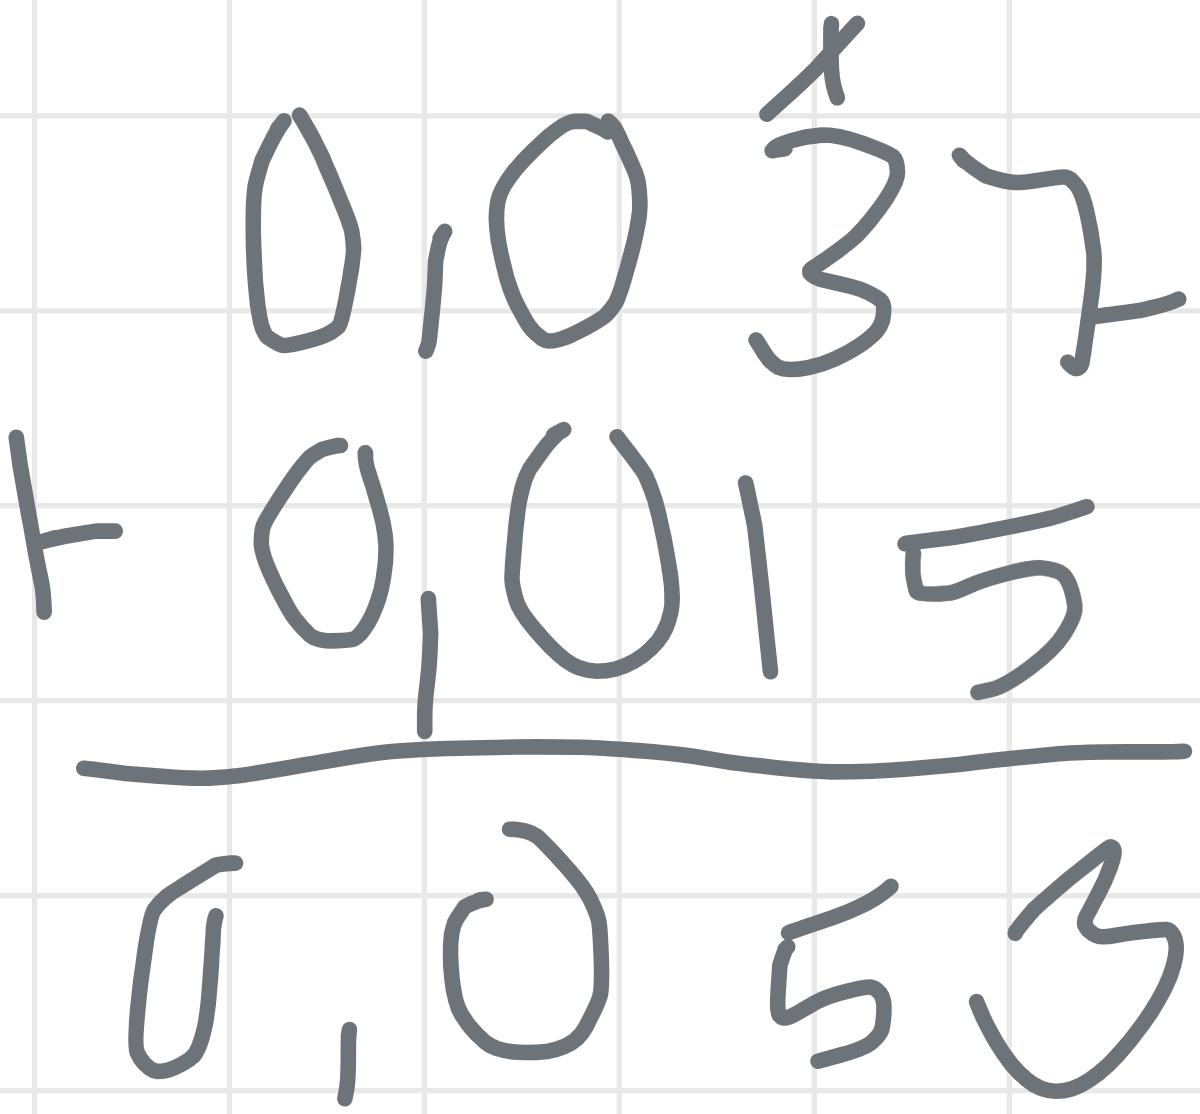 1
0,037
+ 0,015
0,053